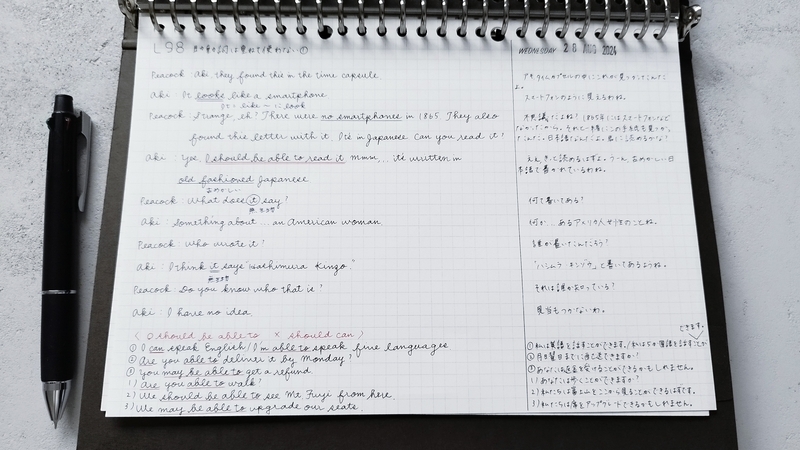 L98 助動詞は重ねて使わない①
WEDNESDAY 28 AUG 2024
Peacock: Aki they found this in the time capsule.
Aki: It looks like a smartphone
it's like ~ に look
Peacock: Strange, eh? There were no smartphones in 1865. They also
found this letter with it. It's in Japanese. Can you read it?
Aki: Yes, I should be able to read it. Mmm,... it's written in
old fashioned Japanese
古めかしい
Peacock: What does it say?
無生物
Aki: Something about ... an American woman.
Peacock: Who wrote it?
Aki: I think it says "Hashimura Kingo"
無生物
Peacock: Do you know who that is?
Aki: I have no idea.
( ○ should be able to × should can )
① I can speak English / I'm able to speak five languages
② Are you able to deliver it by Monday?
③ You may be able to get a refund
1) Are you able to walk?
2) We should be able to see Mt Fuji from here.
3) We may be able to upgrade our seats.
アキ、タイムカプセルの中にこれが見つかったんだ
よ。
スマートフォンのように見えるわね。
不思議だよね? 1865年にはスマートフォンなど
ええ、きっと読めるはずよ。うーん、古めかしい日
本語で書かれているわね。
何て書いてある?
何か...あるアメリカ人女性のことね。
誰が書いたんだろう?
「ハシムラ・キンゴウ」と書いてあるようね。
それは誰か知っている?
見当もつかないわ。
できます。
①私は英語を話すことができます。/私は5か国語を話すことが
②月曜日までに配達できますか?
③あなたは返金を受けることができるかもしれません。
1)あなたは歩くことができますか?
2)私たちは富士山をここから見ることができるはずです。
3)私たちは席をアップグレードできるかもしれません。